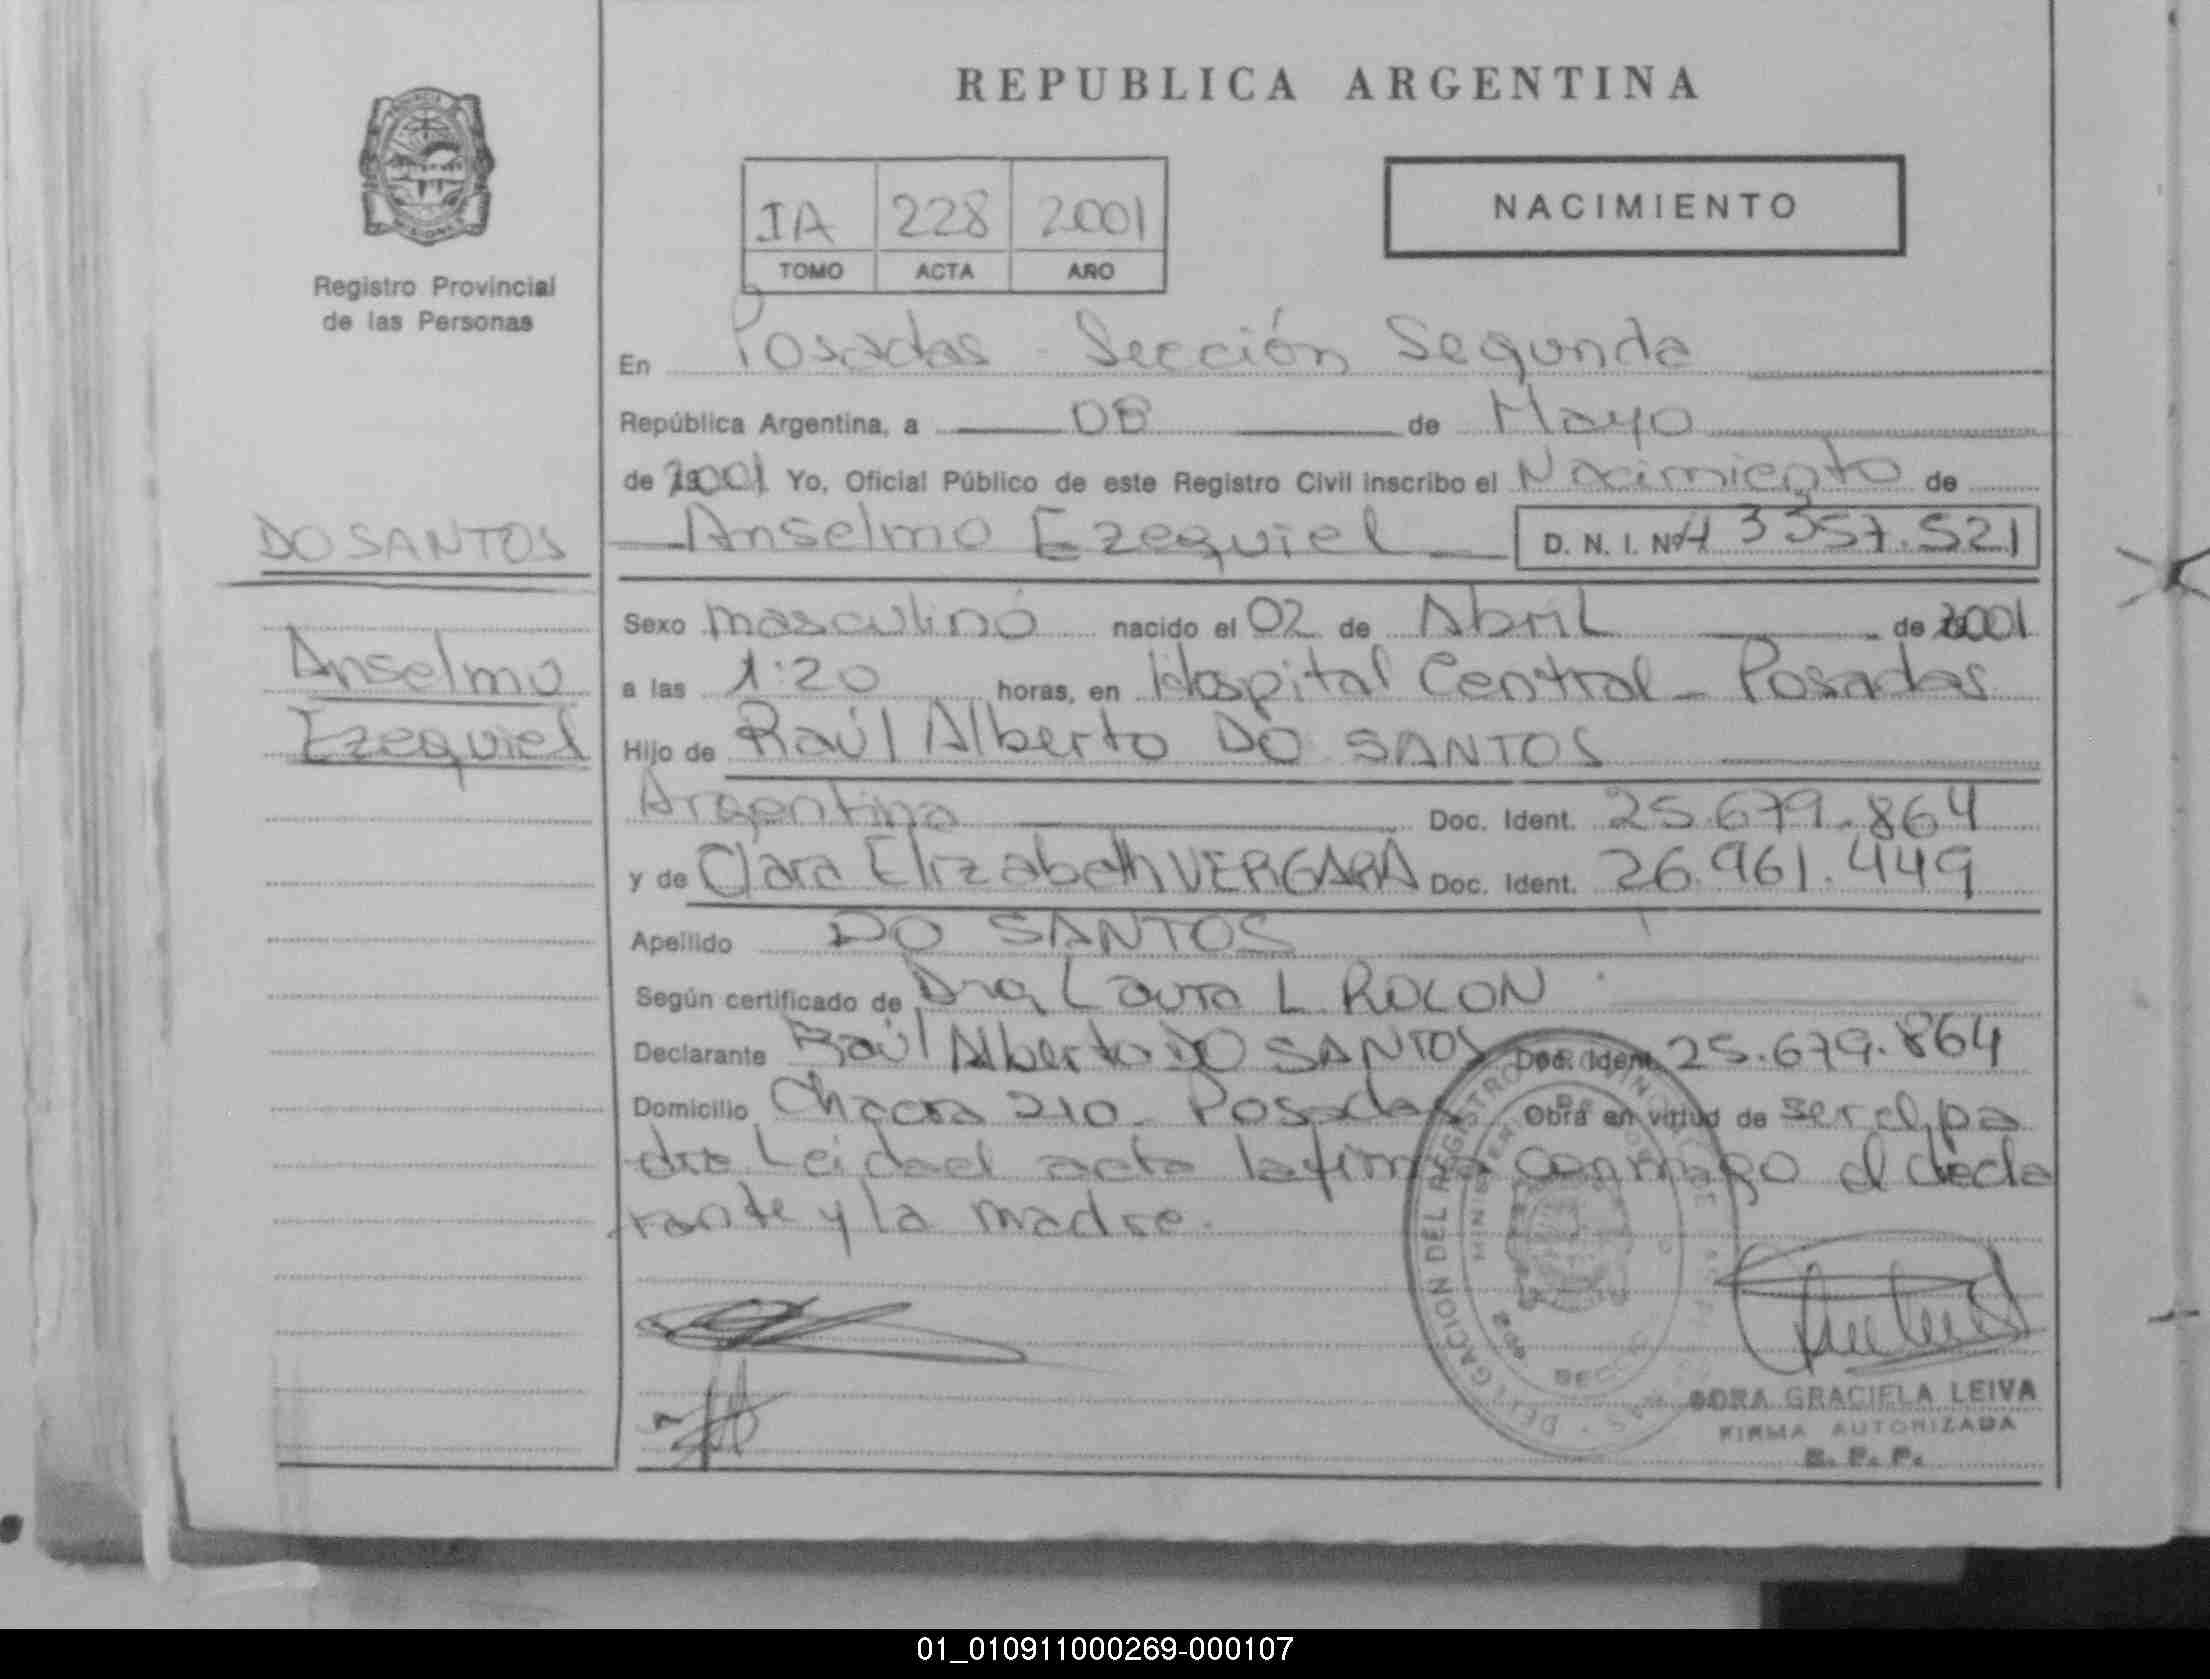 REPUBLICA ARGENTINA
Registro Provincial
de las Personas
IA 228 2001
TOMO ACTA AÑO
NACIMIENTO
En Posadas - Sección Segunda
República Argentina, a 08 de Mayo
de 2001 Yo, Oficial Público de este Registro Civil inscribo el Nacimiento de
DO SANTOS
Anselmo Ezequiel D. N. I. Nº 43357.521
Sexo masculino nacido el 02 de Abril de 2001
Anselmo
a las 1:20 horas, en Hospital Central - Posadas
Ezequiel
Hijo de Raúl Alberto DO SANTOS
Argentina Doc. Ident. 25.679.864
y de Clara Elizabeth VERGARA Doc. Ident. 26.961.449
Apellido DO SANTOS
Según certificado de Dra, Laura L. ROLON
Declarante Raúl Alberto DO SANTOS Doc. Ident. 25.679.864
Domicilio Chacra 210 - Posadas Obra en virtud de ser el pa
dre Leida el acta la firma conmigo el decla
rante y la madre.
DELEGACION DEL REGISTRO
SORA GRACIELA LEIVA
FIRMA AUTORIZADA
R. P. P.
01_010911000269-000107